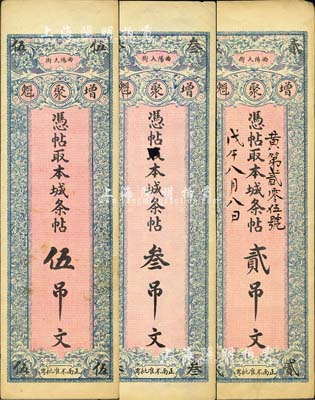 貳 貳
西陽大街
增聚魁
黃第貳零伍號
憑帖取本城条帖貳吊文
戊午八月八日
貳 貳
正南不准批寫
叁
西陽大街
增聚魁
憑帖取本城条帖叁吊文
叁 叁
正南不准批寫
伍 伍
西陽大街
增聚魁
憑帖取本城条帖伍吊文
伍 伍
正南不准批寫